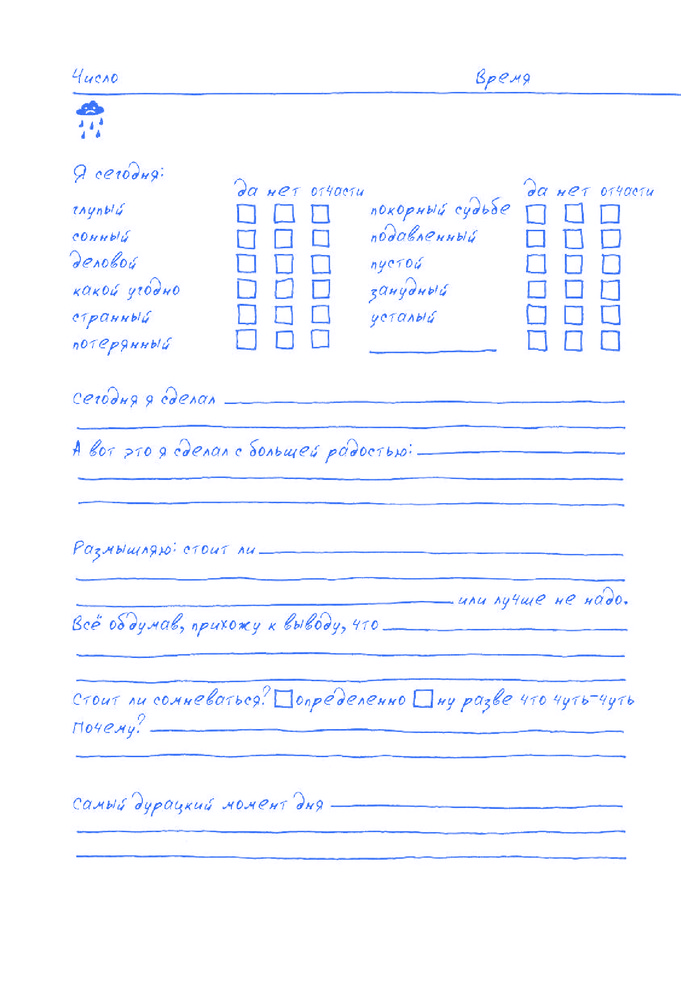 Число Время
Я сегодня:
да нет отчасти да нет отчасти
глупый покорный судьбе
сонный подавленный
деловой пустой
какой угодно занудный
странный усталый
потерянный
Сегодня я сделал
А вот это я сделал с большей радостью:
Размышляю: стоит ли
или лучше не надо.
Всё обдумав, прихожу к выводу, что
Стоит ли сомневаться? определенно ну разве что чуть-чуть
Почему?
Самый дурацкий момент дня